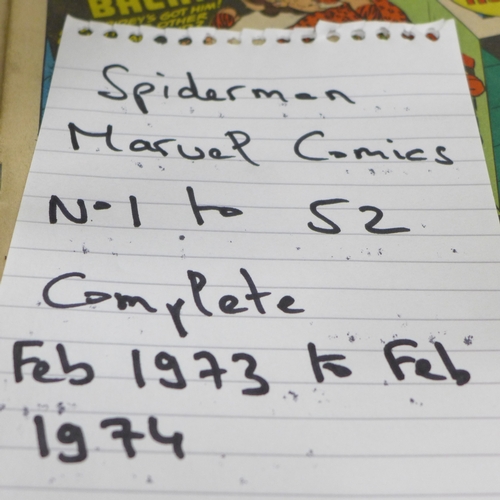 GOT HIM!
Spiderman
Marvel Comics
No 1 to 52
Complete
Feb 1973 to Feb
1974